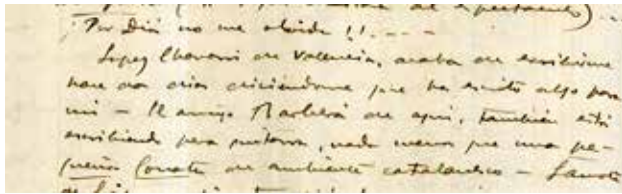 de espectaculo)
¡Por Diós no me olvide!!. - - -
Lopez Chavarri de Valencia, acaba de escribirme
hace dos dias diciéndome que ha escrito algo para
mi - El amigo Barberá de aqui, también está
escribiendo para guitarra, nada menos que una pe-
queña Sonata de ambiente catalanesco -